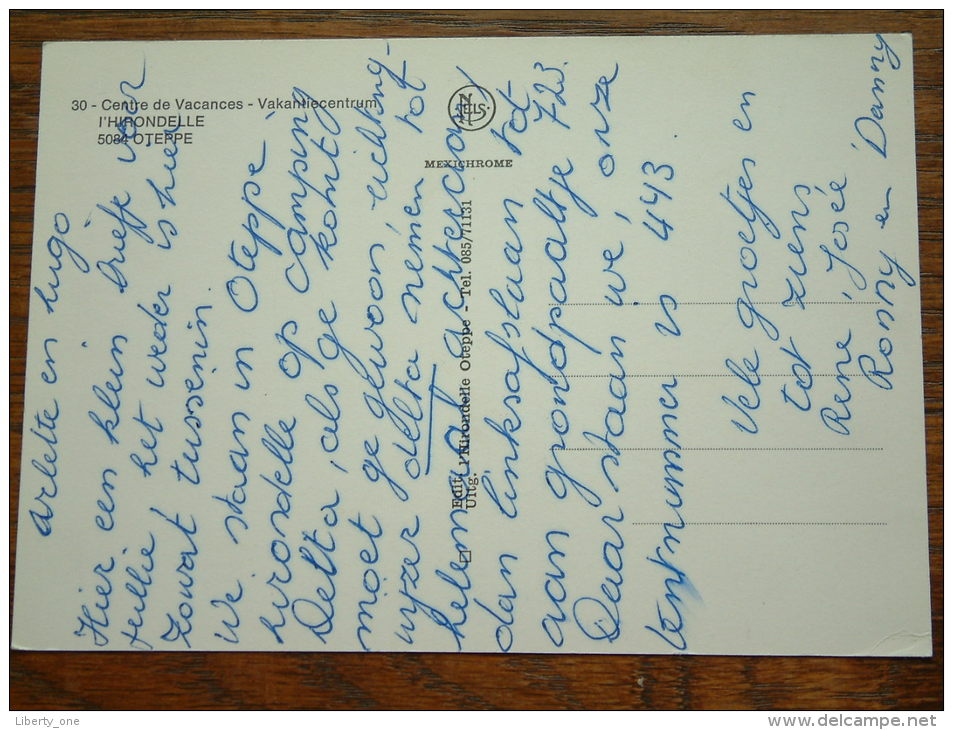 30 - Centre de Vacances - Vakantiecentrum
l'HIRONDELLE
5084 OTEPPE
NELS
MEXICHROME
Edit. l'Hirondelle Oteppe - Tel. 085/71131
Uitg.
Arlette en hugo
Hier een klein briefje voor
jullie het weder is hier
zowat tussenin.
We staan in Oteppe
hirondelle op camping
Delta, als ge komt, ge
moet gewoon richting-
wyzer delta nemen tot
helemaal achteraan
dan linksafslaan tot
aan grondpaaltje 723.
Daar staan we, onze
tentnummer is 443.
Vele groetjes en
tot ziens
René, José
Ronny en Danny
Liberty_one
www.delcampe.net